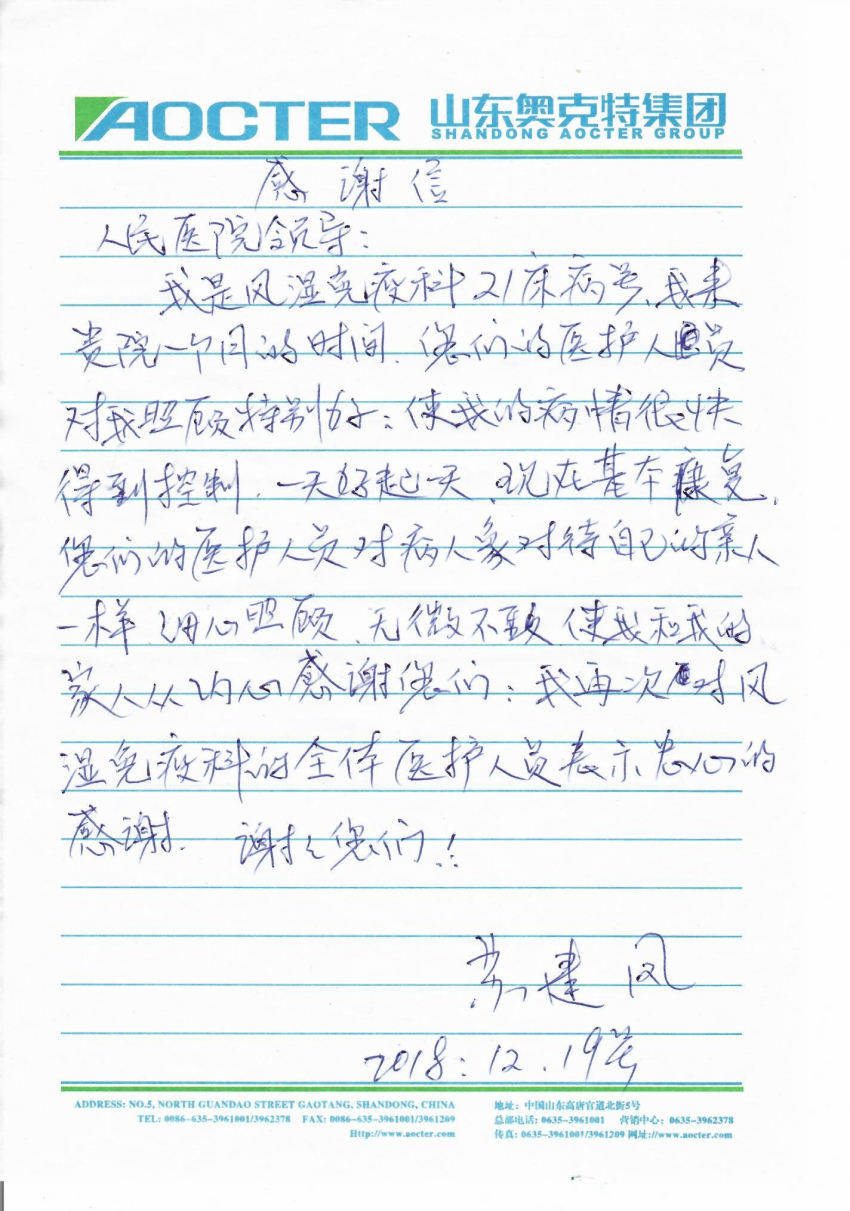 AOCTER 山东奥克特集团
SHANDONG AOCTER GROUP
感谢信
人民医院领导:
我是风湿免疫科21床病号、我来
贵院一个月的时间.您们的医护人员
对我照顾特别好;使我的病情很快
得到控制.一天好起一天.现在基本康复.
您们的医护人员对病人象对待自已的亲人
一样.细心照顾.无微不致.使我和我的
家人从内心感谢您们;我再次对风
湿免疫科的全体医护人员表示忠心的
感谢. 谢々您们!
苏建凤
2018:12.19号
ADDRESS: NO.5, NORTH GUANDAO STREET GAOTANG, SHANDONG, CHINA
TEL: 0086-635-3961001/3962378 FAX: 0086-635-3961001/3961209
Http://www.aocter.com
地址:中国山东高唐官道北街5号
总部电话:0635-3961001 营销中心:0635-3962378
传真:0635-3961001/3961209 网址://www.aocter.com